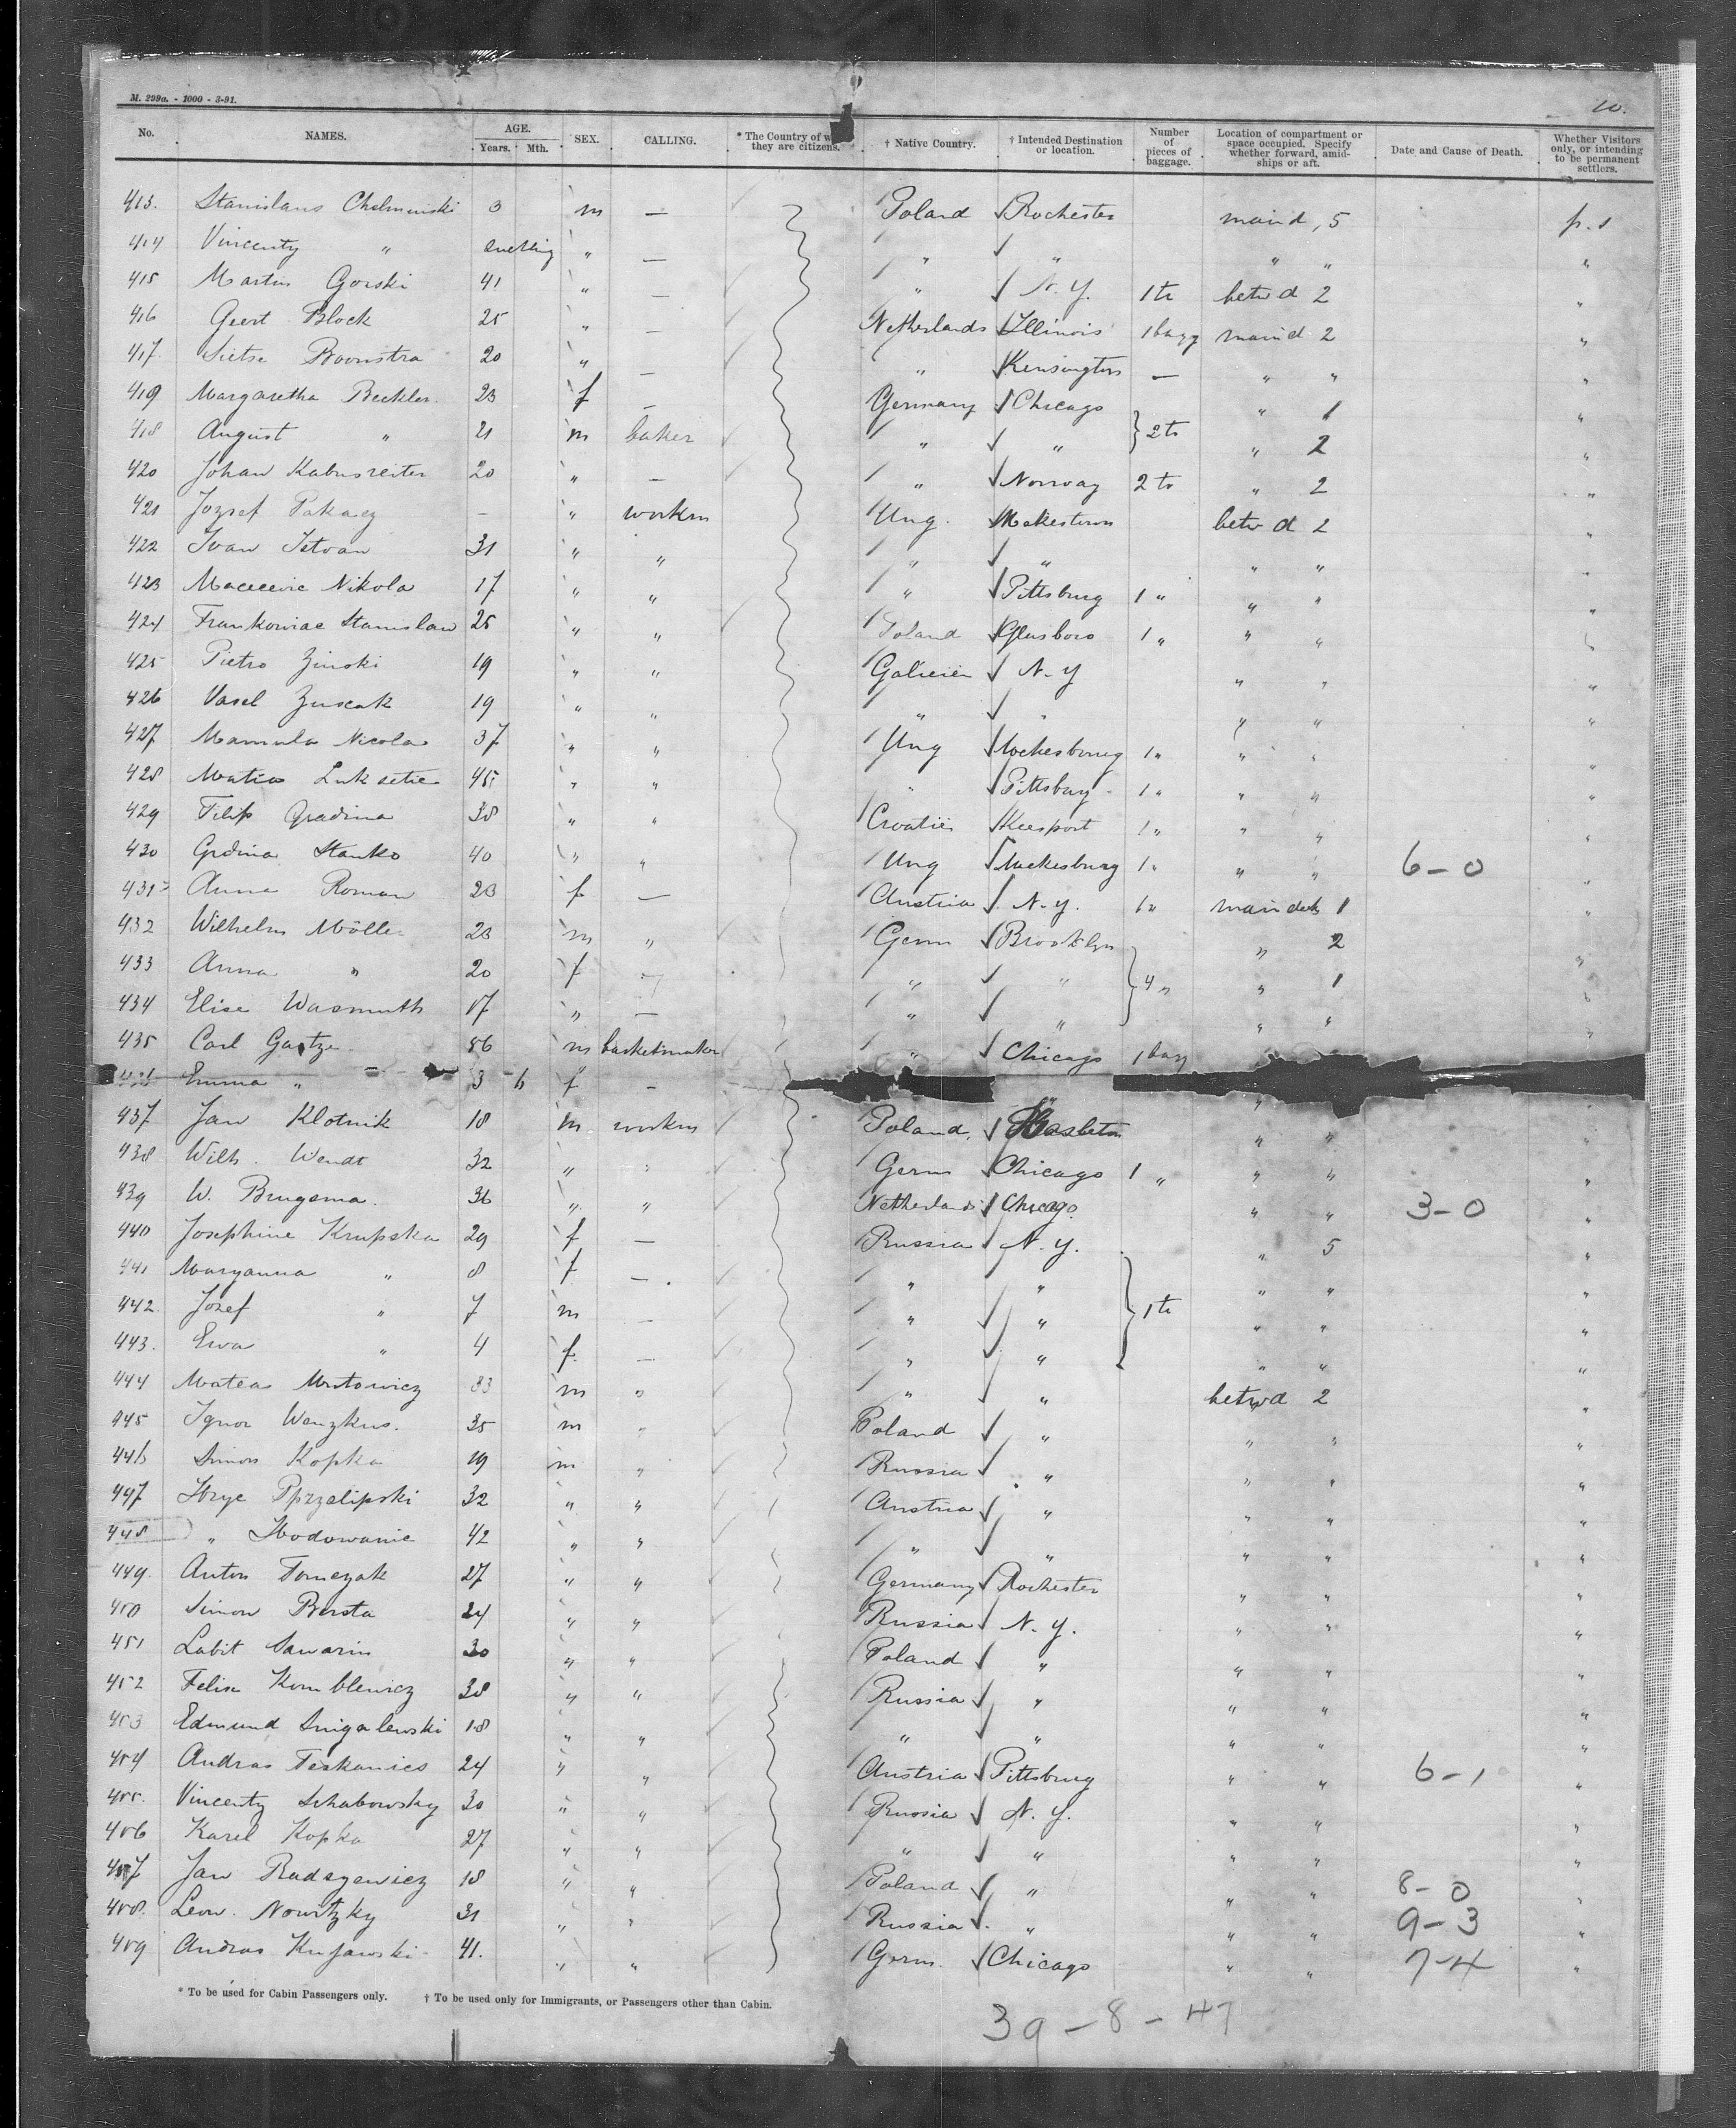 M. 299a. - 1000 - 3-91.
10.
No. NAMES. AGE. Years. Mth. SEX. CALLING. * The Country of w they are citizens. † Native Country. † Intended Destination or location. Number of pieces of baggage. Location of compartment or space occupied. Specify whether forward, amidships or aft. Date and Cause of Death. Whether Visitors only, or intending to be permanent settlers.
413. Stanislaus Chelminski 3 m — Poland Rochester maind, 5 p. s
414 Vincenty " suckling " — " " " " "
415 Martin Gorski 41 " — " N. Y. 1 tr betwd 2 "
416 Geert Block 25 " — Netherlands Illinois 1 bagg maind 2 "
417. Sietse Boonstra 20 " — " Kensington — " " "
419 Margaretha Beckler 23 f — Germany Chicago } 2 tr " 1 "
418 August " 21 m baker " " " 2 "
420 Johan 20 " — " Norway 2 tr " 2 "
421 Jozsef Takacz — " workm Ung. betw d 2 "
422 Ivan Istvan 31 " " " " " " "
423 Nikola 17 " " " Pittsburg 1 " " " "
424 Frankowiac Stanislaw 25 " " Poland Glasboro 1 " " " "
425 Pietro Zinski 19 " " Galicien N. Y " " "
426 Vasel Zuscak 19 " " " " " " "
427 Mamula Nicola 37 " " Ung 1 " " " "
428 Matias 45 " " " Pittsburg 1 " " " "
429 Filip Gradina 38 " " Croatien Keesport 1 " " " "
430 Grdina Stanko 40 " " Ung 1 " " " 6-0 "
431 Anna Roman 23 f — Austria N. Y. 1 " maindeck 1 "
432 Wilhelm Möller 23 m " Germ Brooklyn } 4 " " 2 "
433 Anna " 20 f — " " " 1 "
434 Elise Wasmuth 17 " — " " " " "
435 Carl Gartze 56 m basketmaker " Chicago 1 bagg
436 Emma " 3 f — "
437 Jan Klotnik 18 m workm Poland Hasleton " " "
438 Wilh. Wendt 32 " " Germ Chicago 1 " " " "
439 W. Brugsma 36 " " Netherlands Chicago " " 3-0 "
440 Josephine Krupska 29 f — Russia N. Y. } 1 tr " 5 "
441 Maryanna " 8 f — " " " " "
442. Josef " 7 m — " " " " "
443. Ewa " 4 f. — " " " " "
444 Mateas 33 m " " " betwd 2 "
445 35 m " Poland " " " "
446 Simon Kopka 19 m " Russia " " " "
447 32 " " Austria " " " "
448 " 42 " " " " " " "
449. Anton Tomczak 27 " " Germany Rochester " " "
450 Simon Borsta 24 " " Russia N. Y. " " "
451 Labit Sawarin 30 " " Poland " " " "
452 Felix 38 " " Russia " " " "
453 Edmund 18 " " " " " " "
454 Andras 24 " " Austria Pittsburg " " 6-1 "
455. Vincenty Schabowsky 30 " " Russia N. Y. " " "
456 Karel Kopka 27 " " " " " " "
457 Jan 18 " " Poland " " " 8-0 "
458. Leon. Nowitzky 31 " " Russia " " " 9-3 "
459 Andras Kujawski 41. " " Germ. Chicago " " 7-4 "
* To be used for Cabin Passengers only. † To be used only for Immigrants, or Passengers other than Cabin.
39-8-47